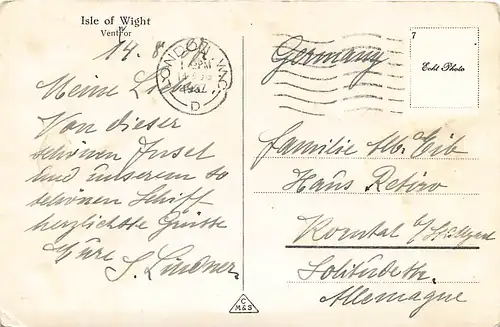 Isle of Wight
Ventnor
14. 8.
LONDON
D
Meine Lieben
Von dieser
schönen Insel
und unserem so
schönen Schiff
herzlichste Grüsse
Eure
S. Lindner
Germany
7
Echt Photo
Familie Alb. Eib
Haus Retiro
Korntal b/Stuttgart
Solitudestr.
Allemagne
C
M&S